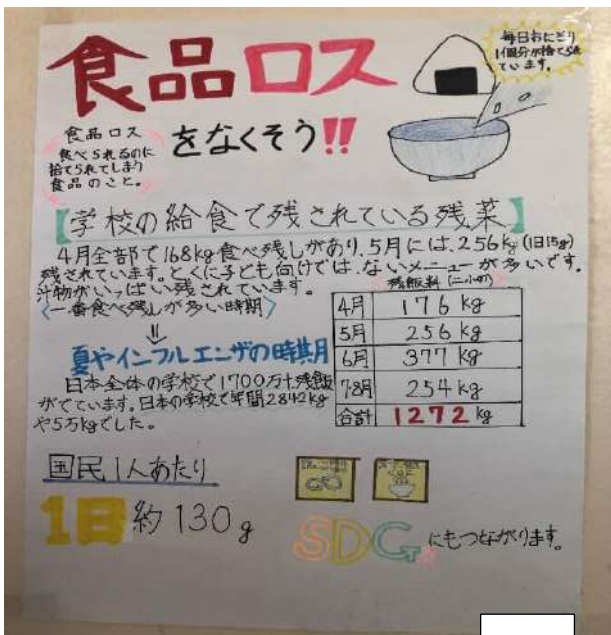 食品ロス
をなくそう!!
毎日おにぎり
1個分が捨てられ
ています。
食品ロス
食べられるのに
捨てられてしまう
食品のこと。
【学校の給食で残されている残菜】
4月全部で168kg食べ残しがあり、5月には、256kg(1日15g)
残されています。とくに子ども向けでは、ないメニューが多いです。
汁物がいっぱい残されています。
〈一番食べ残しが多い時期〉
⇓
夏やインフルエンザの時期
日本全体の学校で1700万t残飯
がでています。日本の学校で年間2842kg
や5万kgでした。
4月 176kg
5月 256kg
6月 377kg
7・8月 254kg
合計 1272kg
国民1人あたり
1日約130g
SDGs にもつながります。